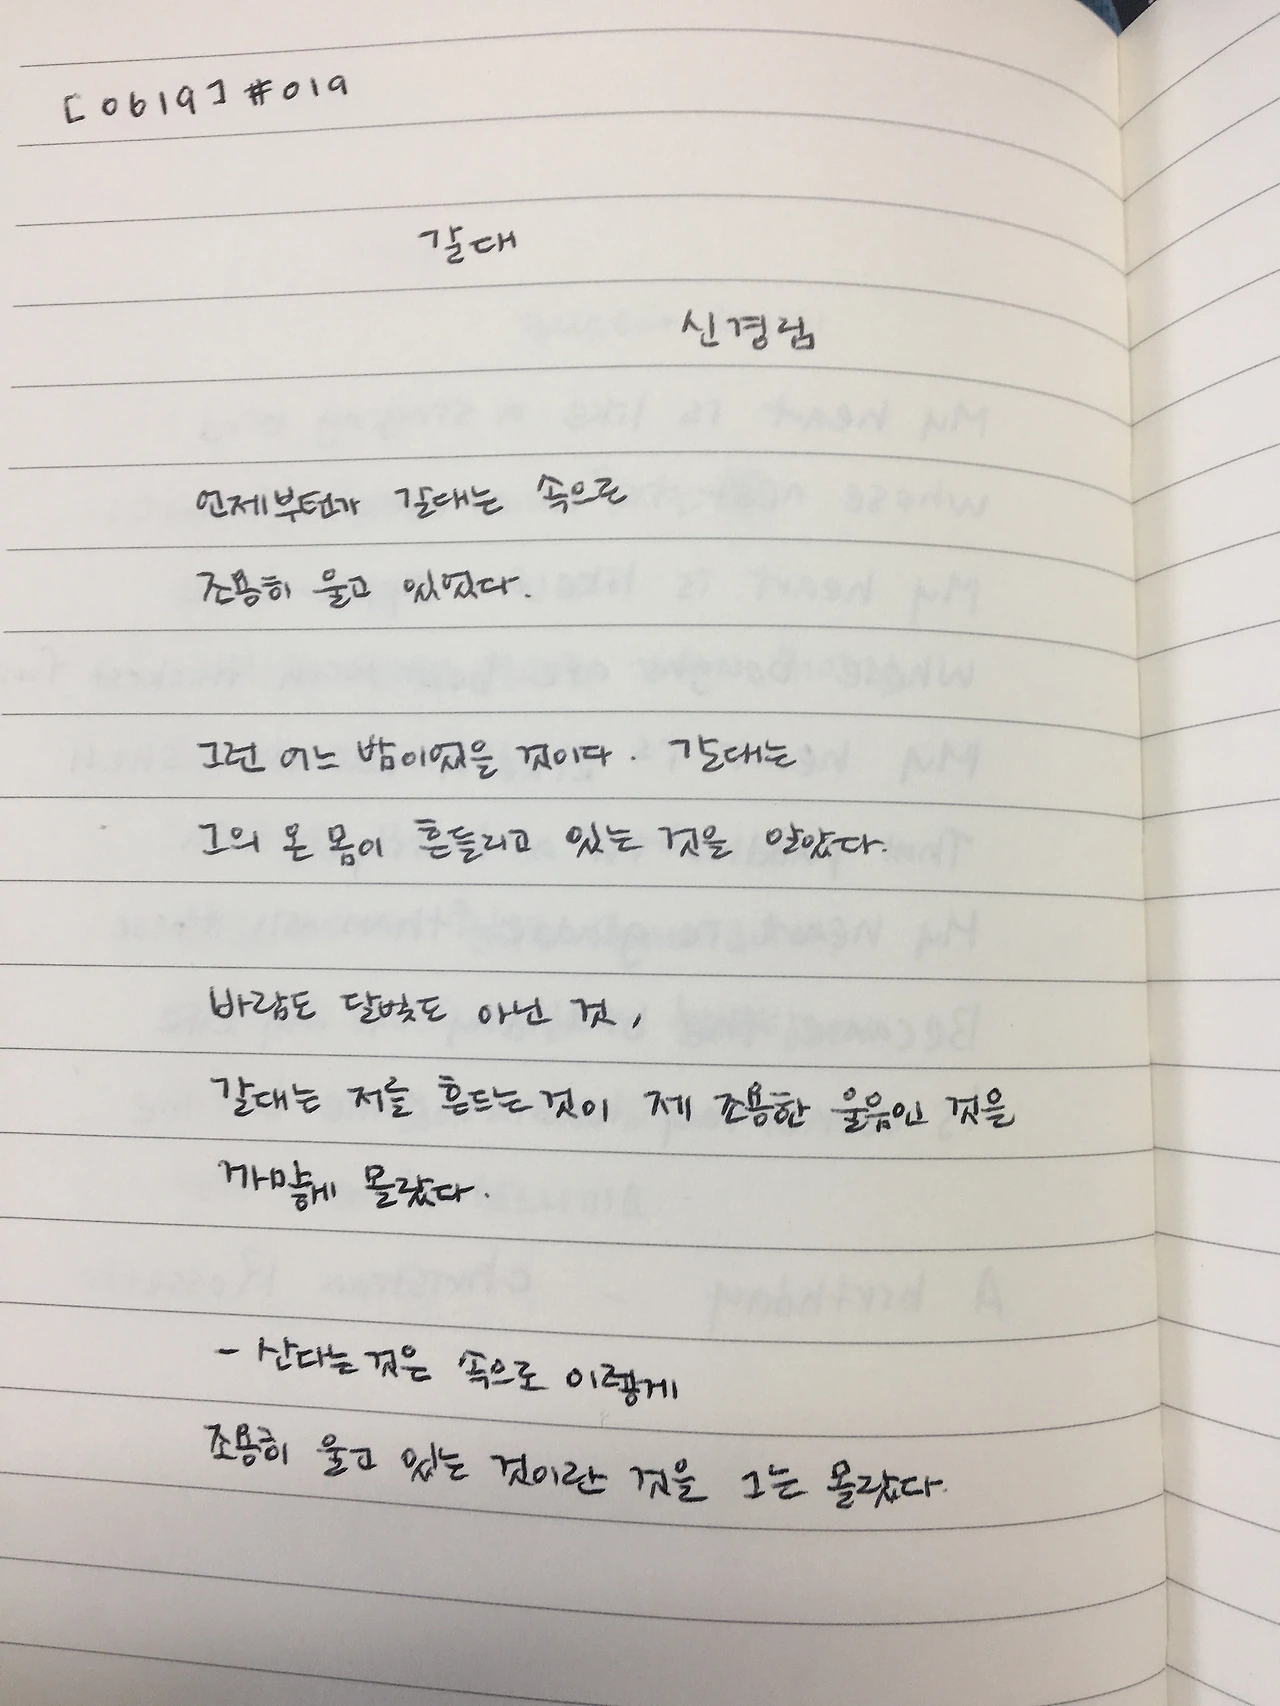 [0619] #019
갈대
신경림
언제부턴가 갈대는 속으로
조용히 울고 있었다.
그런 어느 밤이었을 것이다. 갈대는
그의 온 몸이 흔들리고 있는 것을 알았다.
바람도 달빛도 아닌 것,
갈대는 저를 흔드는 것이 제 조용한 울음인 것을
까맣게 몰랐다.
- 산다는 것은 속으로 이렇게
조용히 울고 있는 것이란 것을 그는 몰랐다.